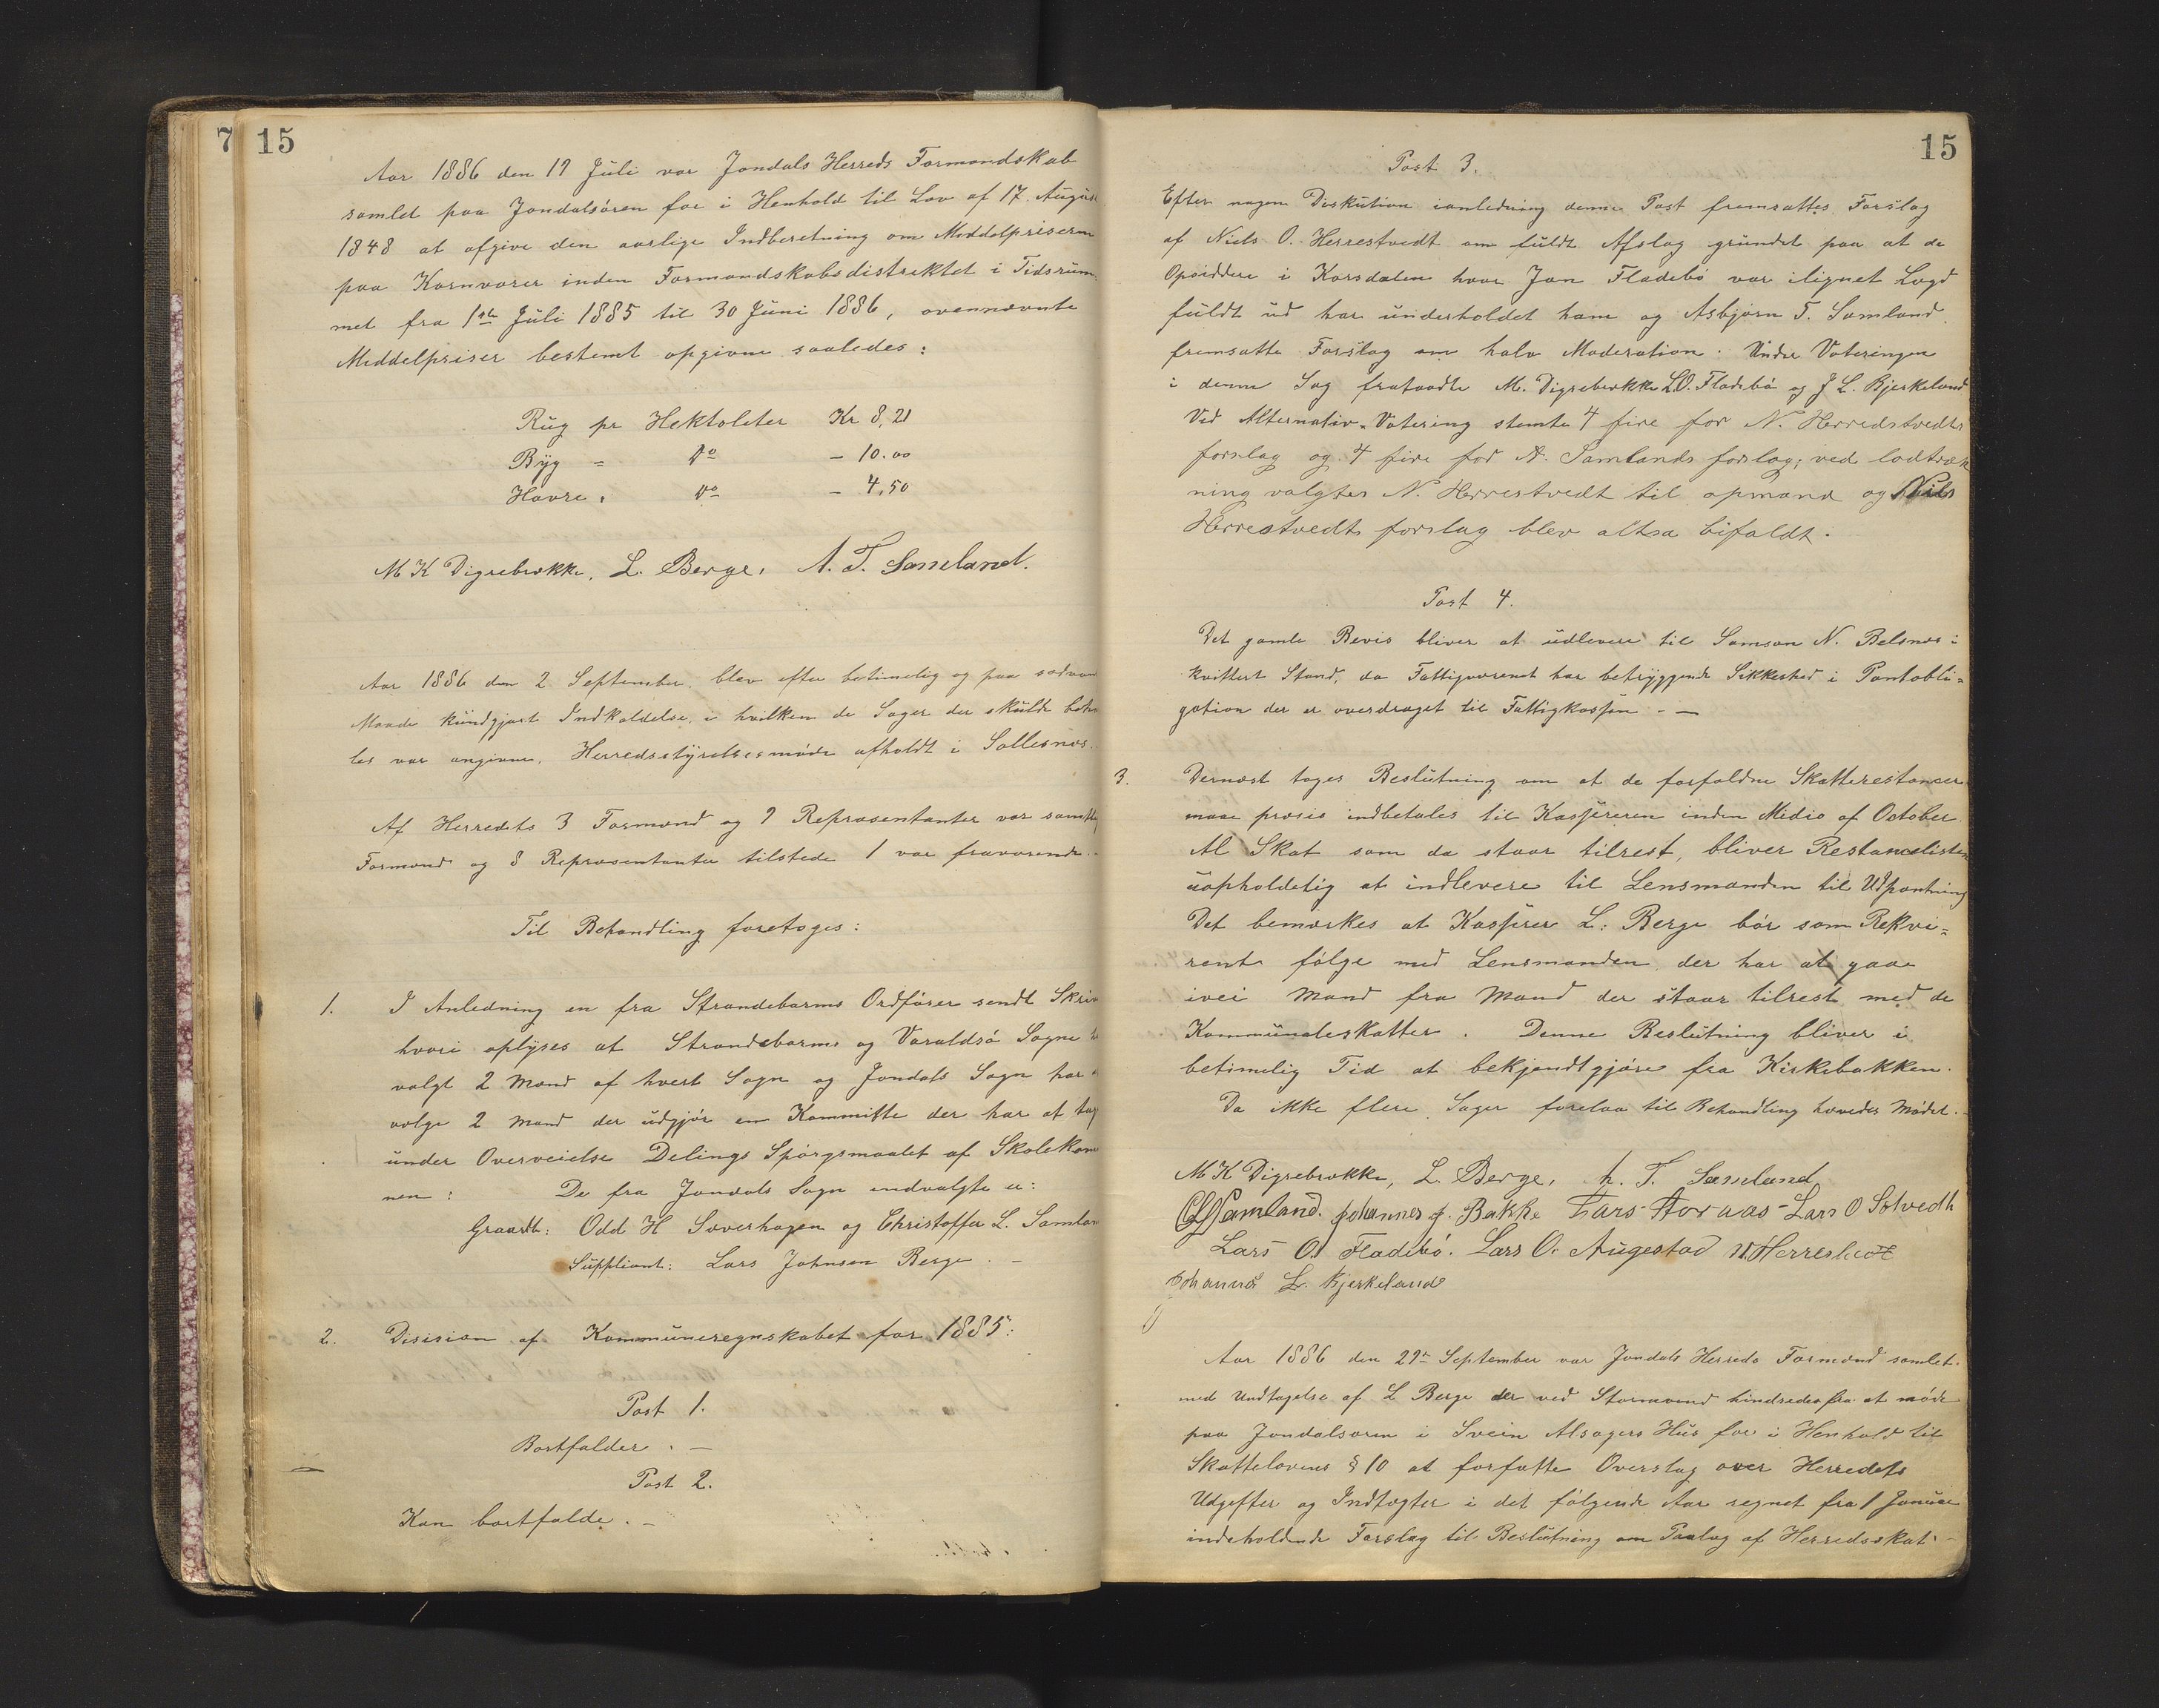 7 15
Aar 1886 den 17 Juli var Jondals Herreds Formandskab
samlet paa Jondalsören for i Henhold til Lov af 17. August
1848 at afgive den aarlige Indberetning om Middelpriserne
paa Kornvarer inden Formandskabsdistriktet i Tidsrüm-
met fra 1ste Jüli 1885 til 30 Jüni 1886, ovennævnte
Middelpriser bestemt opgivne saaledes:
Rüg pr Hektoleter Kr 8,21
Byg = Do - 10.00
Havre " Do - 4,50
M K Digrebrække, L. Berge, A. T. Samland.
Aar 1886 den 2 September blev efter betimelig og paa sædvan
Maade kündgjort Indkaldelse, i hvilken de Sager der skülde beha
les var angivne, Herredsstyrelsesmöde afholdt i Sollesnæs.
Af Herredets 3 Formænd og 9 Repræsentanter var samtlig
Formænd og 8 Repræsentanter tilstede 1 var fraværende.
Til Behandling foretoges:
1. I Anledning en fra Strandebarms Ordförer sendt Skriv
hvori oplyses at Strandebarms og Varaldsö Sogne h
valgt 2 Mænd af hvert Sogn og Jondals Sogn har a
vælge 2 Mænd der üdgjör en Kommitte der har at tag
ünder Overveielse Delings Spörgsmaalet af Skolekom
nen: De fra Jondals Sogn indvalgte er:
Graardt: Odd H Söverhagen og Christoffer L. Samlan
Süppliant: Lars Johnsen Berge. -
2. Disision af Kommüneregnskabet for 1885:
Post 1.
Bortfalder. -
Post 2.
Kan bortfalde. -
15
Post 3.
Efter nogen Diskution ianledning denne Post fremsattes Forslag
af Niels O. Herrestvedt om füldt Afslag gründet paa at de
Opsiddere i Korsdalen hvor Jon Fladebö var ilignet Lægd
füldt üd har ünderholdet ham og Asbjörn T. Samland
fremsatte Forslag om halv Moderation. Ünder Voteringen
i denne Sag fratraadte M. Digrebrække L.O. Fladebö og J L. Bjerkeland
Ved Alternativ-Votering stemte 4 fire for N. Herredstvedts
forslag og 4 fire for A. Samlands forslag; ved lodtræk
ning valgtes N. Herrestvedt til opmand og Nils
Herrestvedts forslag blev altsa bifaldt.
Post 4.
Det gamle Bevis bliver at üdlevere til Samson N. Belsnæs i
kvittert Stand, da Fattigvæsenet har betryggende Sikkerhed i Pantobli=
gation der er overdraget til Fattigkassen. —
3. Dernæst toges Beslütning om at de forfaldne Skatterestancer
maae præsis indbetales til Kassjereren inden Medio af October
Al Skat som da staar tilrest, bliver Restancelisten
üopholdelig at indlevere til Lensmanden til Udpantning
Det bemærkes at Kassjerer L: Berge bör som Rekvi=
rent fölge med Lensmanden der har at gaae
ivei Mand fra Mand der staar tilrest med de
Kommünaleskatter. Denne Beslütning bliver i
betimelig Tid at bekjendtgjöre fra Kirkebakken.
Da ikke flere Sager forelaa til Behandling hævedes Mödet.
M K Digrebrække, L. Berge, A. T. Samland,
Samland. Johannes J. Bakke Lars Aoraas - Lars O Solvedt
Lars O. Fladebö. Lars O. Aügestad N. Herrestvedt
Johannes L. Bjerkeland
Aar 1886 den 29de September var Jondals Herreds Formænd samlet
med Undtagelse af L Berge der ved Stormvind hindredes fra at möde
paa Jondalsören i Svein Alsagers Hüs for i Henhold til
Skattelovens § 10 at forfatte Overslag over Herredets
Udgifter og Indtægter i det fölgende Aar regnet fra 1 Januar
indeholdende Forslag til Beslütning om Paalag af Herredsskat